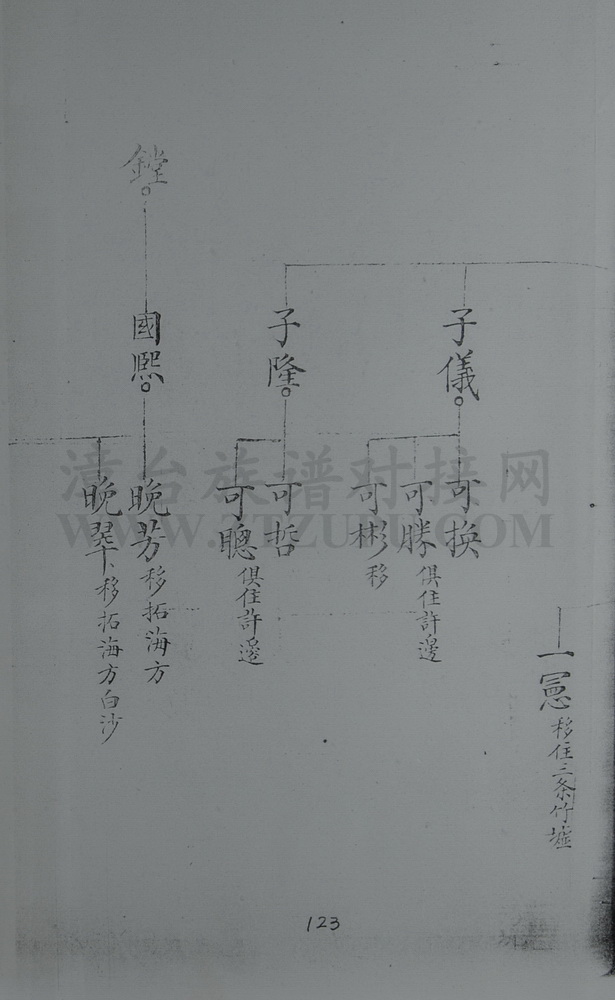 一憲 移住三条竹墟
子儀
可換
可勝 俱住許邊
可彬 移
子隆
可哲
可聰 俱住許邊
鏜
國熙
晚芳 移拓海方
晚翠 移拓海方白沙
漳台族谱对接网
123